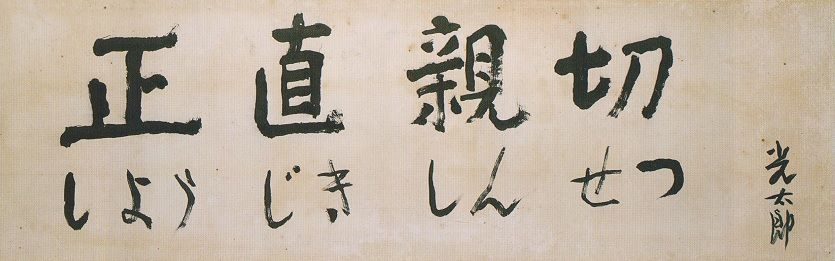 正直親切
しよう じき しん せつ
光太郎